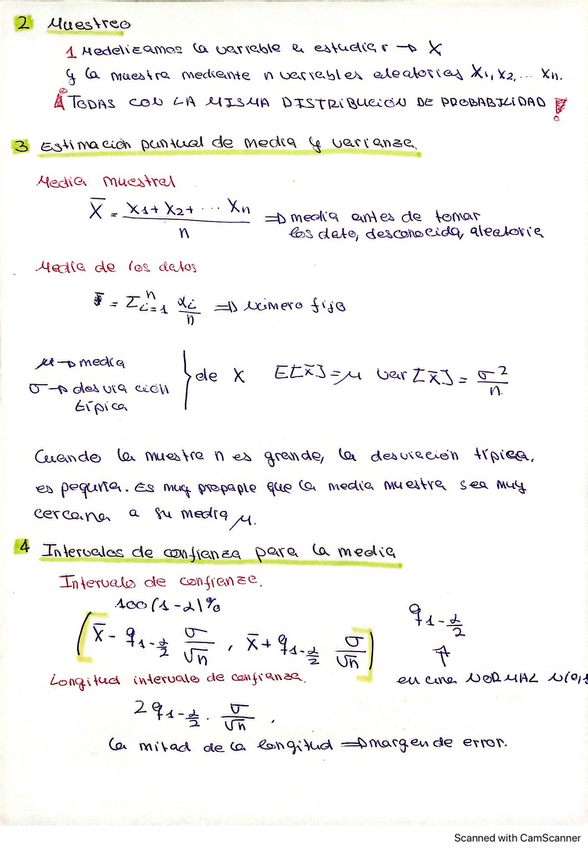 2 Muestreo
1 Modelizamos la variable a estudiar → X
y la muestra mediante n variables aleatorias X₁, X₂, ... Xn.
¡A TODAS CON LA MISMA DISTRIBUCIÓN DE PROBABILIDAD!
3 Estimación puntual de media y varianza.
Media muestral
X̄ = (X₁ + X₂ + ... Xn) / n ⇒ media antes de tomar
los dato, desconocida, aleatoria
Media de los datos
x̄ = Σⁿᵢ₌₁ xᵢ/n ⇒ número fijo
μ → media
σ → desviación
típica
} de X E[X̄] = μ var[X̄] = σ²/n
Cuando la muestra n es grande, la desviación típica,
es pequña. Es muy propaple que la media muestra sea muy
cercana a su media μ.
4 Intervalos de confianza para la media
Intervalo de confianze.
100(1-α)%
[X̄ - q₁₋α/₂ σ/√n , X̄ + q₁₋α/₂ σ/√n]
q₁₋α/₂
↑
en una NORMAL N(0,1
Longitud intervalo de confianza.
2q₁₋α/₂ · σ/√n ,
la mitad de la longitud ⇒ margen de error.
Scanned with CamScanner